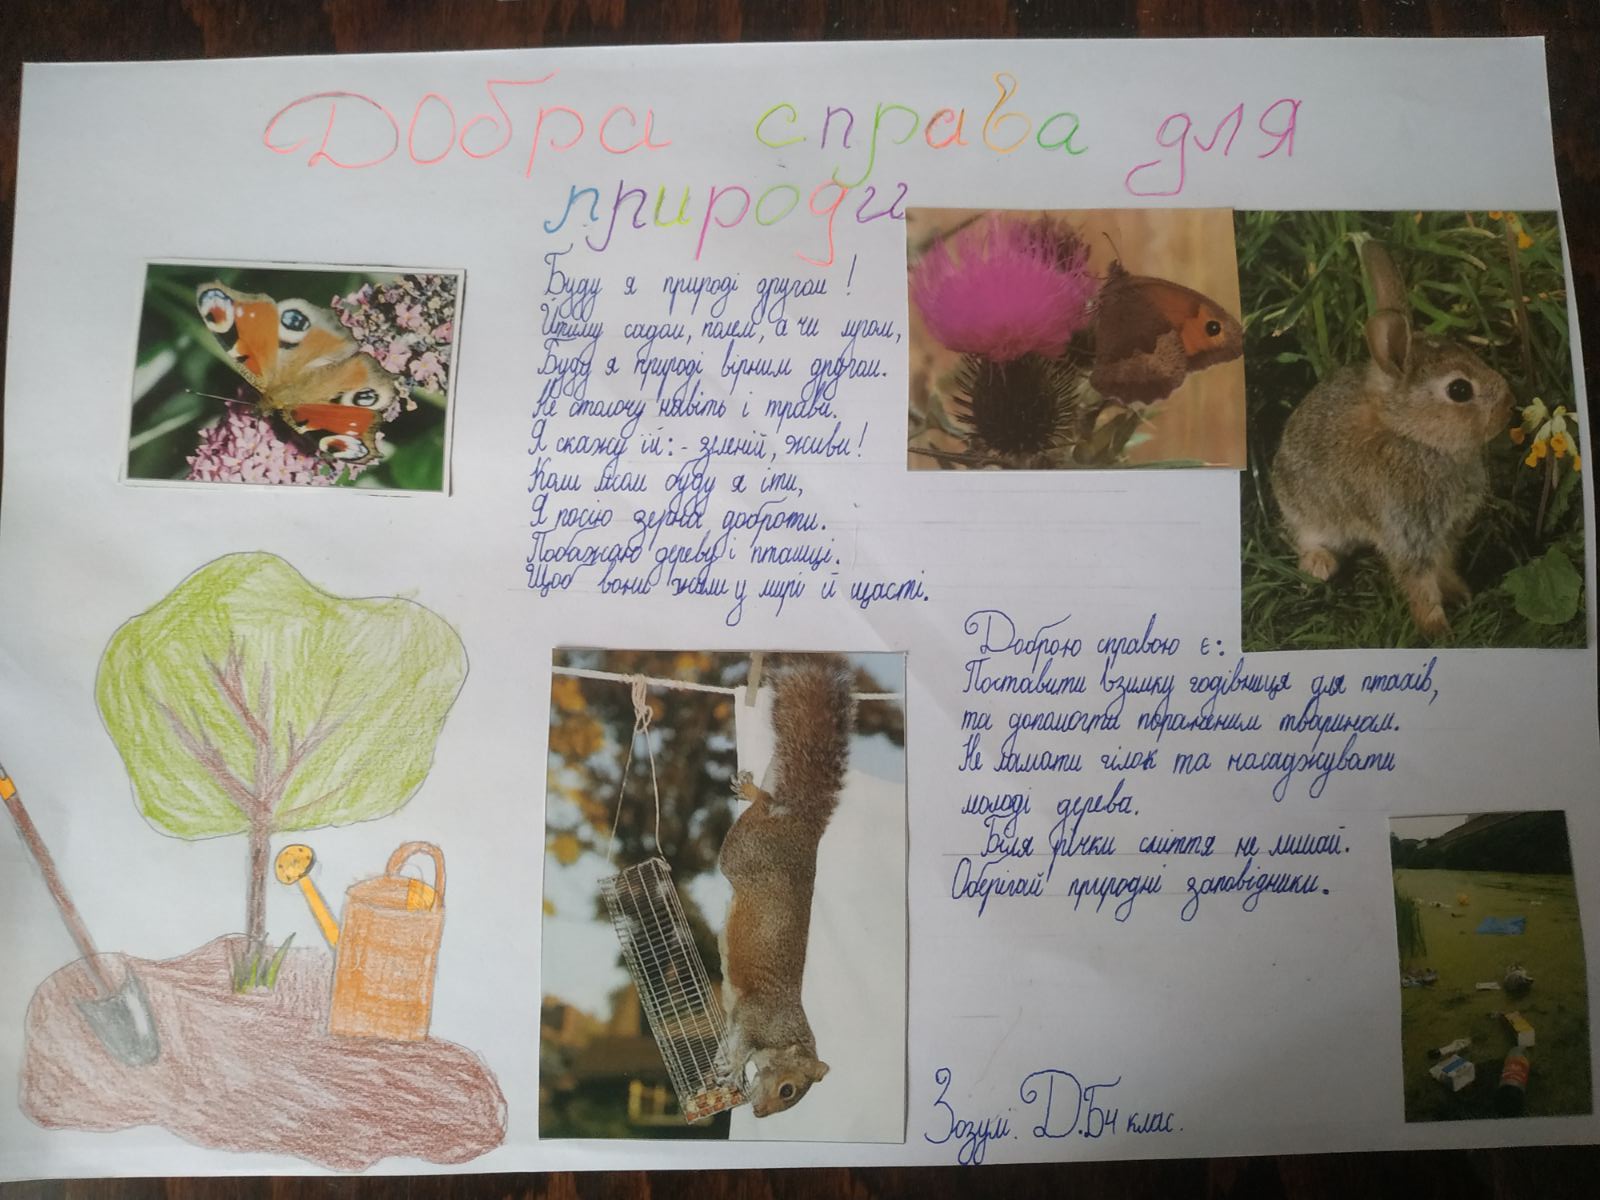 Добра справа для
природи
Буду я природі другом!
Йтиму садом, полем, а чи лугом,
Буду я природі вірним другом.
Не столочу навіть і трави.
Я скажу їй: - зеленій, живи!
Коли лісом буду я іти,
Я посію зерна доброти.
Побажаю дереву і пташці.
Щоб вони жили у мирі й щасті.
Доброю справою є:
Поставити взимку годівниця для птахів,
та допомогти пораненим тваринам.
Не ламати гілок та насаджувати
молоді дерева.
Біля річки сміття не лишай.
Оберігай природні заповідники.
Зозулі. Д.Б4 клас.